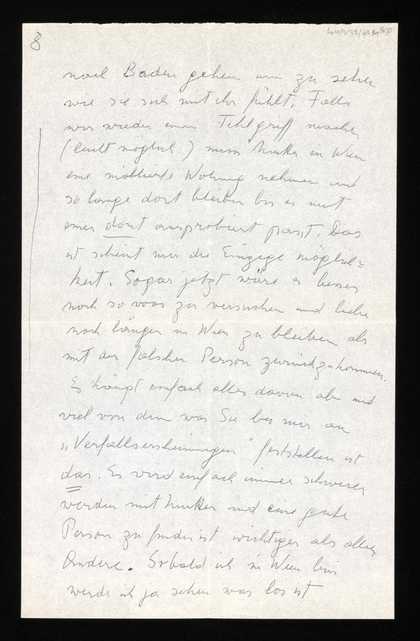 8
nach Baden gehen um zu sehen
wie sie sich mit ihr fühlt. Falls
wir wieder einen machen
(leicht möglich!) muss in Wien
eine möblierte Wohnung nehmen und
so lange dort bleiben bis es mit
einer dort ausprobiert passt. Das
ist scheint mir die Einzige möglich=
keit. Sogar jetzt wäre es besser
noch so was zu versuchen und lieber
noch länger in Wien zu bleiben als
mit der falschen Person zurückzukommen.
Es hängt einfach alles davon ab und
viel von dem was Sie bei mir an
„Verfallserscheinungen" feststellen ist
das. Es wird einfach immer schwerer
werden mit und eine gute
Person zu finden ist wichtiger als alles
Andere. Sobald ich in Wien bin
werde ich ja sehen was los ist